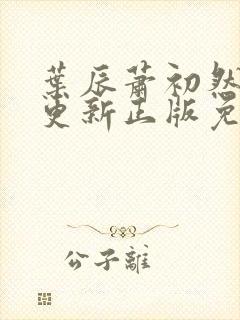 葉辰蕭初然
更新正版免
公子離